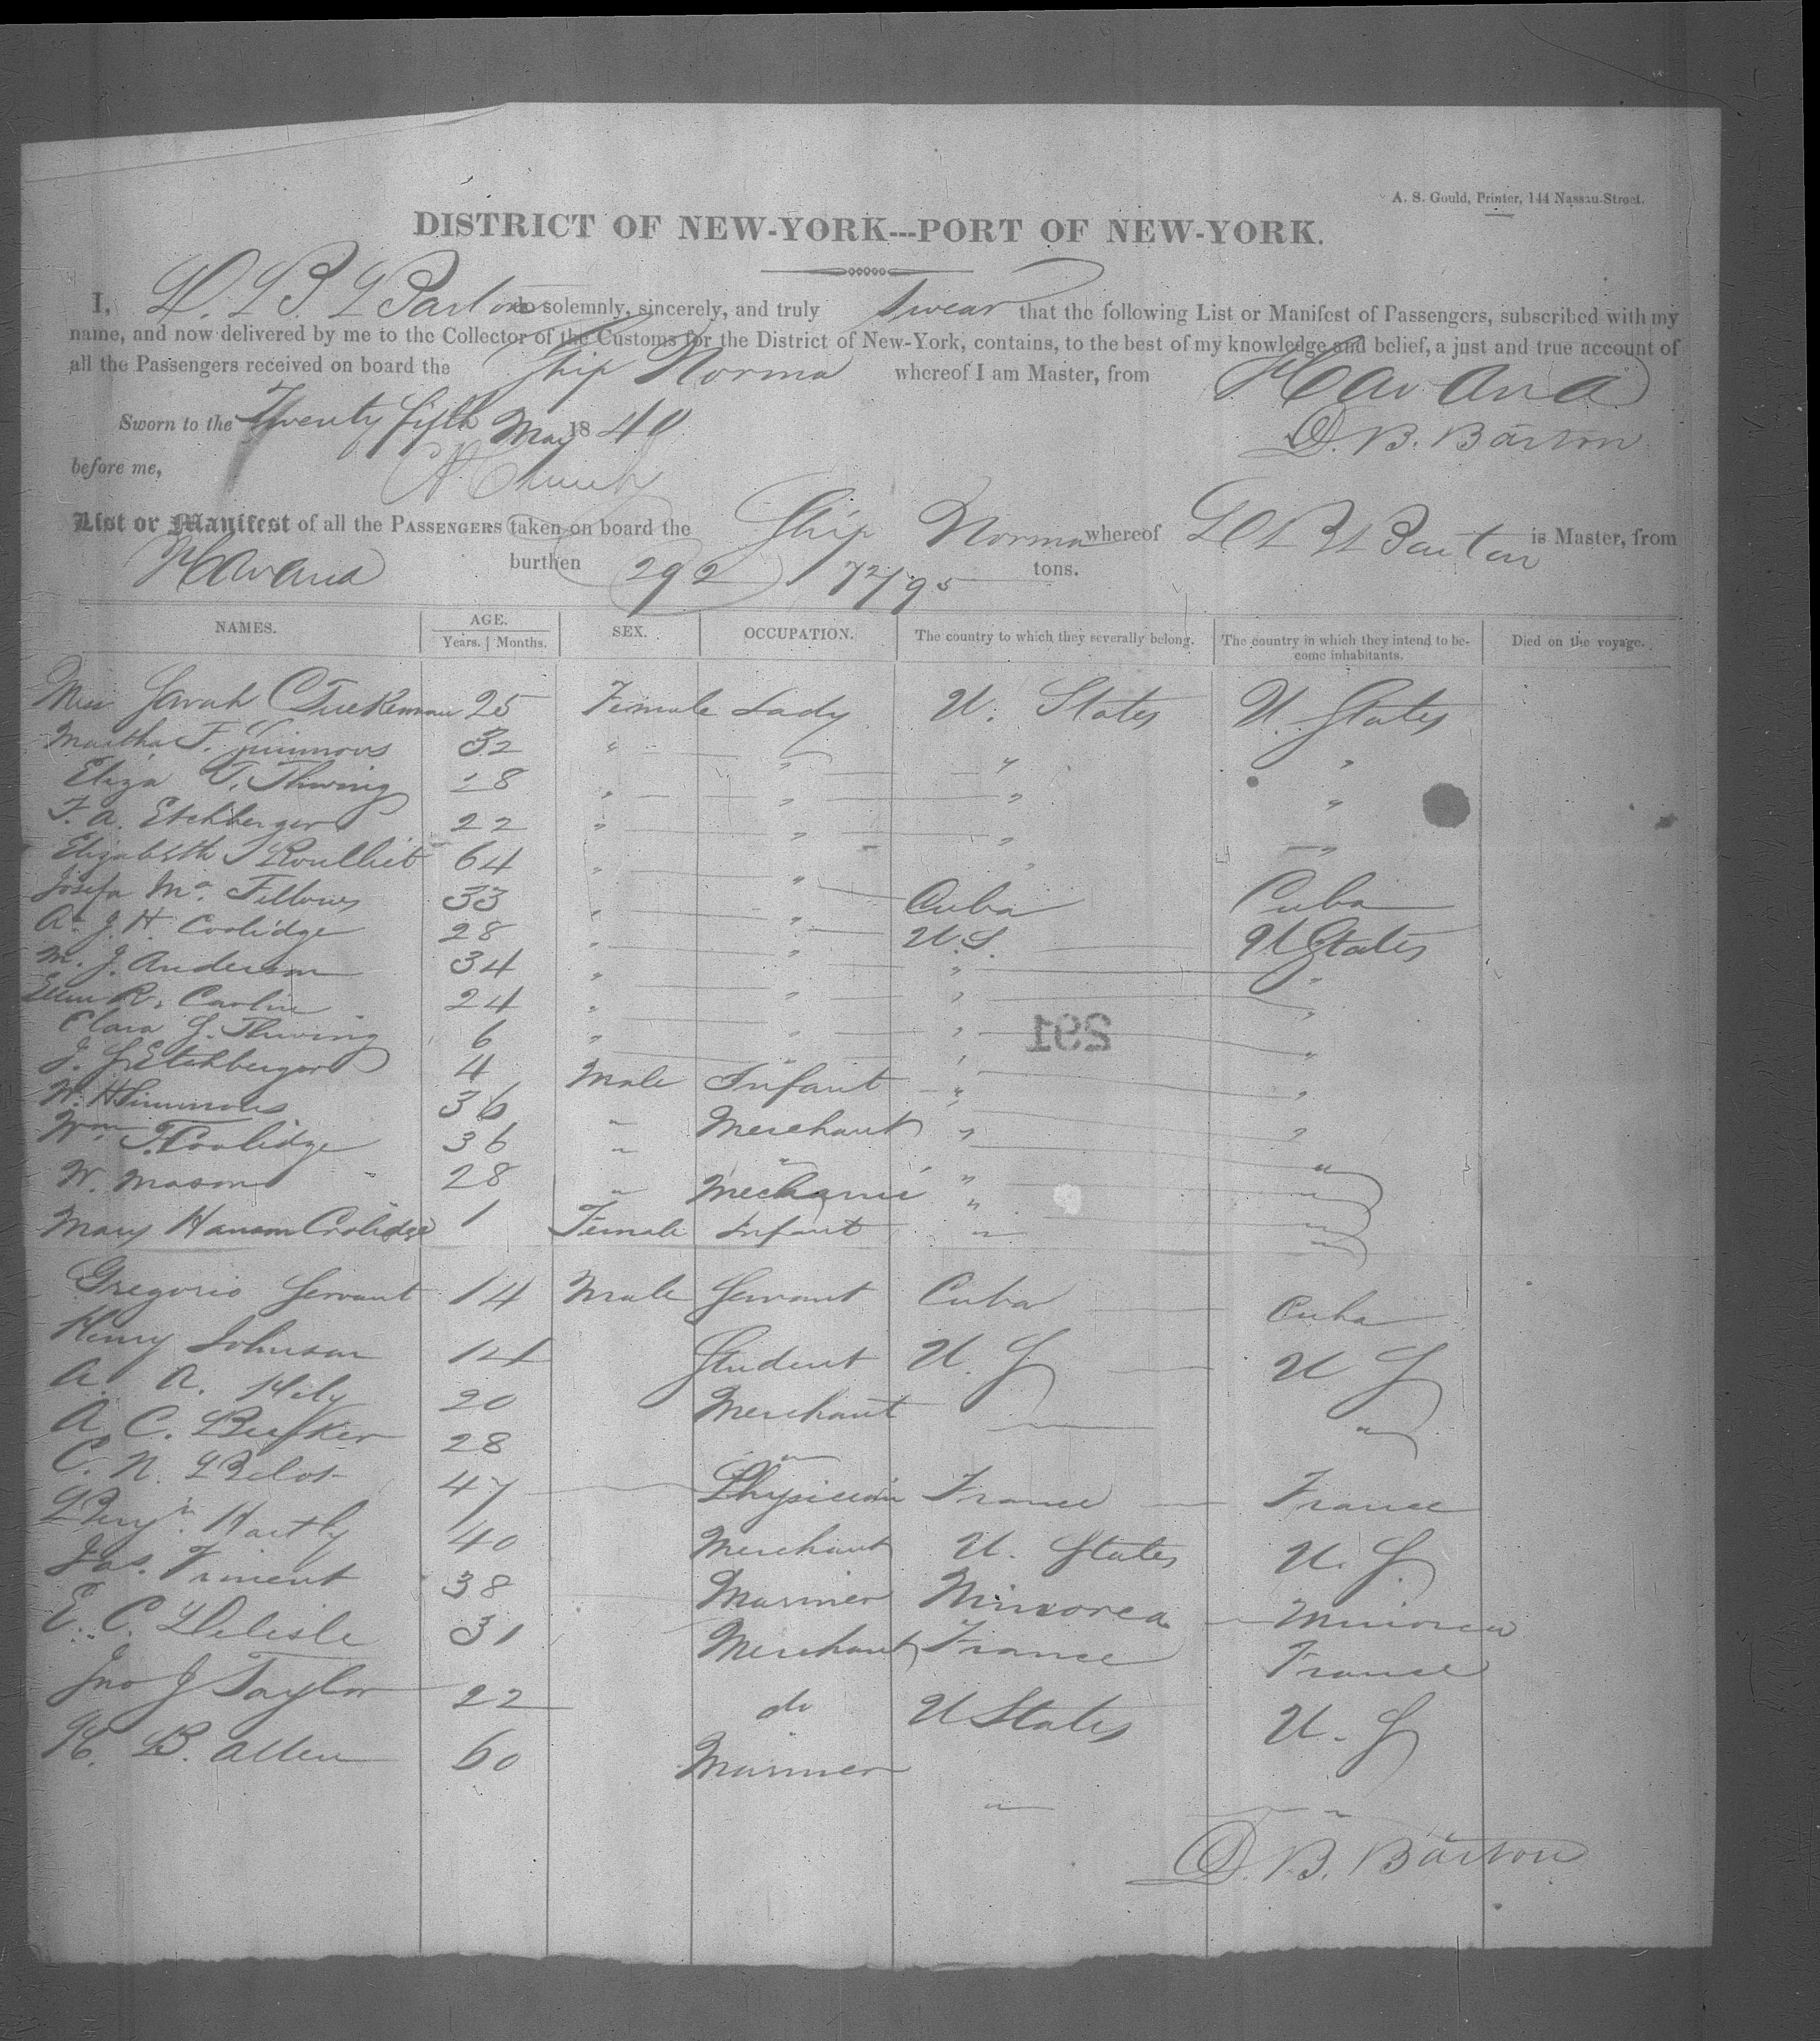 A. S. Gould, Printer, 144 Nassau-Street.
DISTRICT OF NEW-YORK---PORT OF NEW-YORK.
I, D. B. Barton do solemnly, sincerely, and truly swear that the following List or Manifest of Passengers, subscribed with my
name, and now delivered by me to the Collector of the Customs for the District of New-York, contains, to the best of my knowledge and belief, a just and true account of
all the Passengers received on board the Ship Norma whereof I am Master, from Havana
Sworn to the Twenty fifth May 1840 D. B. Barton
before me,
List or Manifest of all the PASSENGERS taken on board the Ship Norma whereof D. B. Barton is Master, from
Havana burthen 292 72/95 tons.
NAMES. AGE. Years. | Months. SEX. OCCUPATION. The country to which they severally belong. The country in which they intend to become inhabitants. Died on the voyage.
Miss Sarah C Tuckerman 25 Female Lady U. States U. States
Martha F. Simmons 32 " " " "
Eliza T. Thwing 28 " " " "
F. A. Etchberger 22 " " " "
Elizabeth Roulliet 64 " " "
Josefa Ma. Fellows 33 " " Cuba Cuba
A. J. H. Coolidge 28 " " U.S. U States
M. J. Anderson 34 " " " "
Ellen R. 24 " " " "
Clara G. Thwing 6 " " " "
J. G. Etchberger 4 Male Infant " "
W. H Simmons 36 " Merchant " "
Wm T. Coolidge 36 " " " "
W. Mason 28 " Mechanic " "
Mary Coolidge 1 Female Infant " "
Gregorio Servant 14 Male Servant Cuba Cuba
Henry Johnson 14 Student U. S U S
A. A. 20 Merchant "
A. C. 28 "
C. N. Belot 47 Physician France France
Benjn. Hartly 40 Merchant U. States U. S.
Jas. Triment 38 Mariner Minorca Minorca
E. C. Delisle 31 Merchant France France
Jno J Taylor 22 do U States U. S
H. B. Allen 60 Mariner " "
D. B. Barton
291